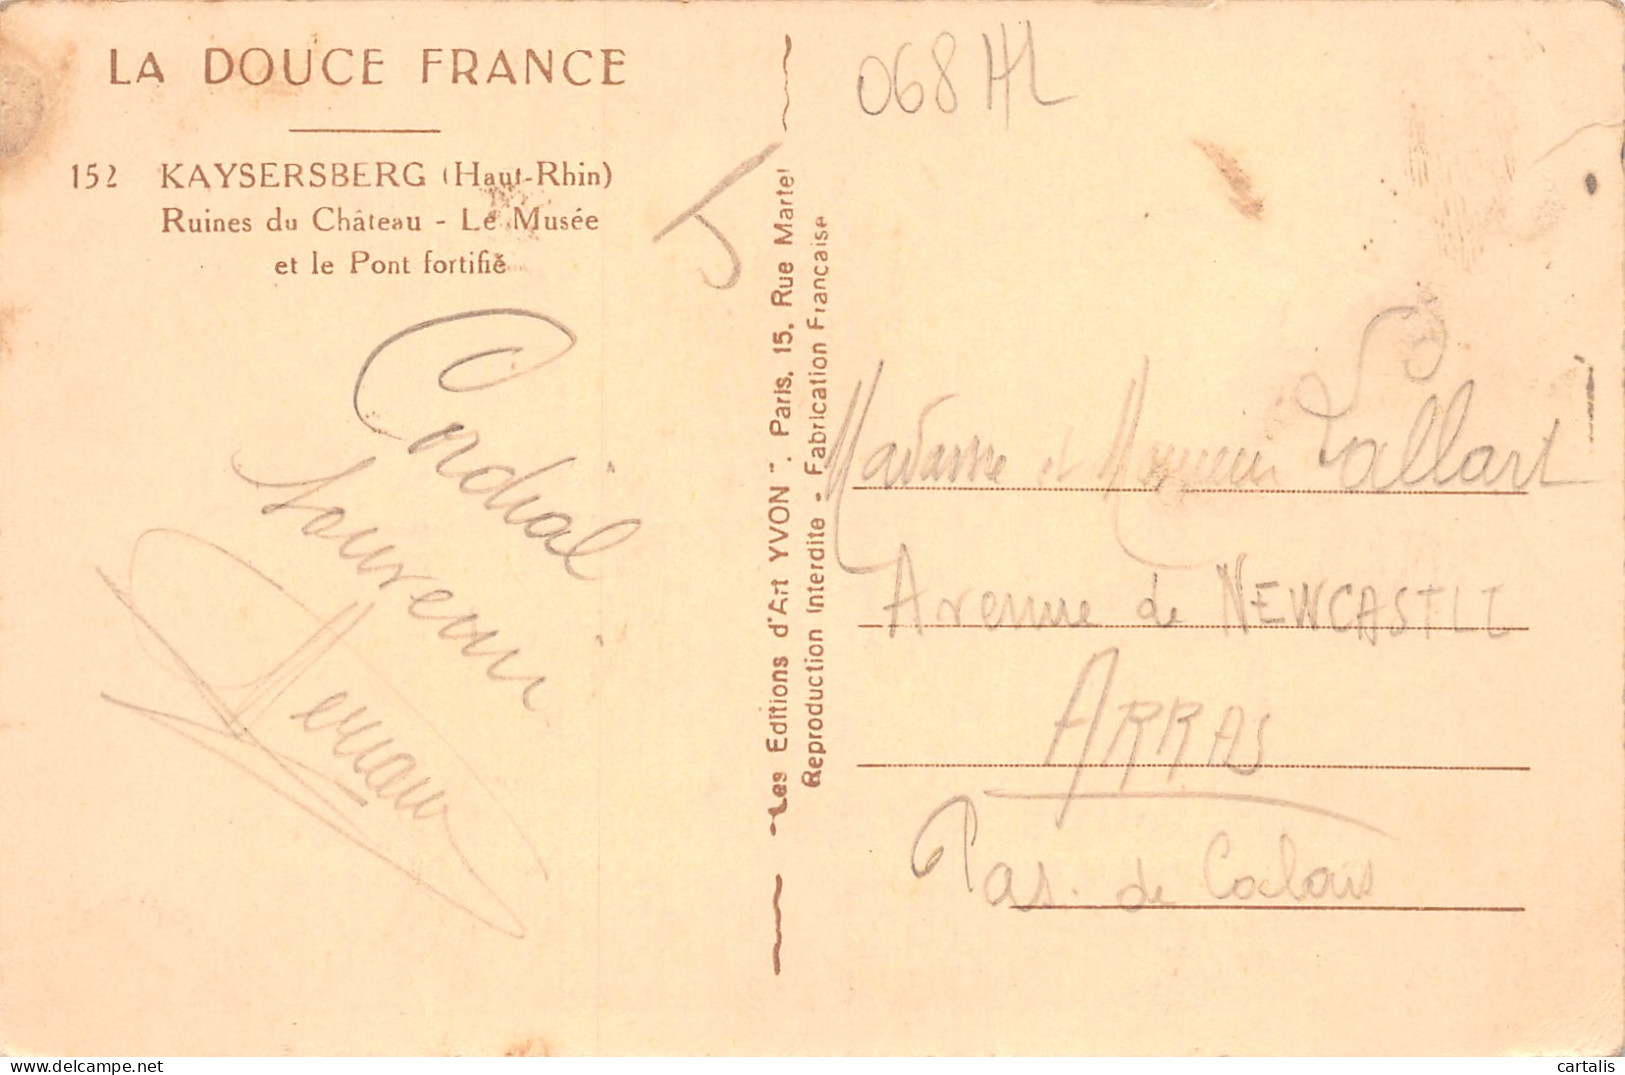 LA DOUCE FRANCE
152 KAYSERSBERG (Haut-Rhin)
Ruines du Château - Le Musée
et le Pont fortifié
Cordial
Souvenir
"Les Editions d'Art YVON". Paris, 15, Rue Martel
Reproduction Interdite - Fabrication Française
068 HL
Madame et Monsieur Lallart
Avenue de NEWCASTLE
ARRAS
Pas. de Calais
cartalis